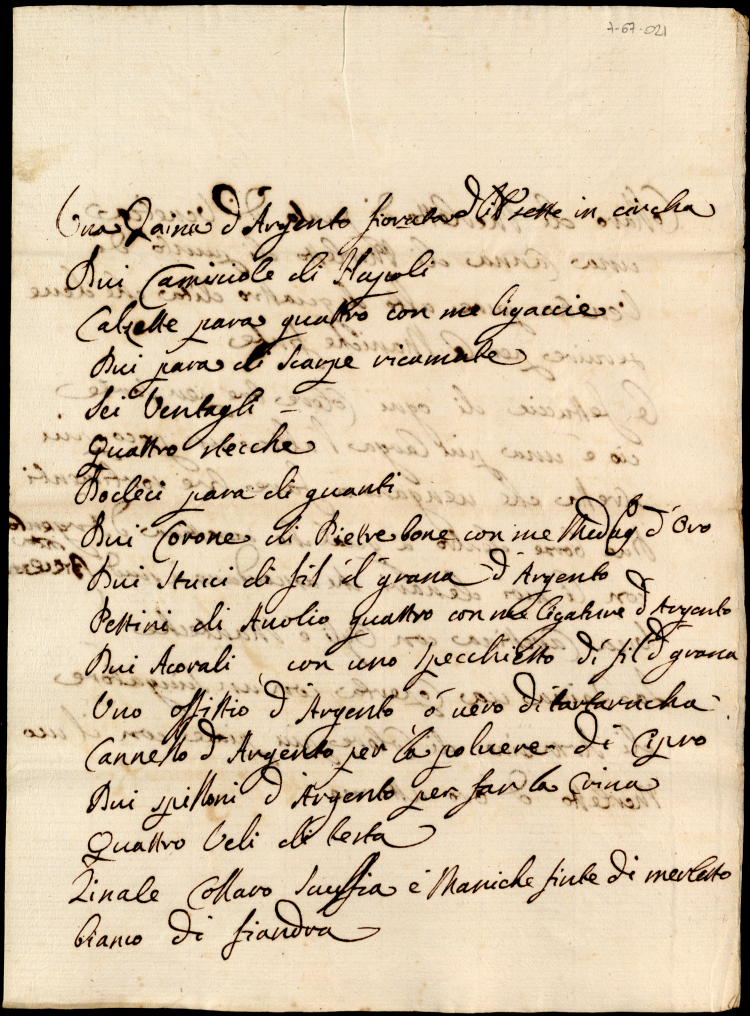 7-67-021
Una Zaina d'Argento fiorata di lib sette in circha
Dui Camisciole di Napoli
Calzette para quattro con me ligaccie
Dui para di Scarpe ricamate
Sei Ventagli -
Quattro stecche
Dodeci para di guanti
Dui Corone di Pietre bone con me Medag d'Oro
Dui Stucci di fil d'grana d'Argento
Pettini di Avolio quattro con me ligature d'Argento
Dui Acorali con uno specchietto di fil d grana
Uno offittio d'Argento ò vero di tartarucha
Cannello d'Argento per la polvere di Cipro
Dui spilloni d'Argento per far la Crina
Quattro Veli di testa
Zinale Collaro Scuffia e Maniche finte di merletto
bianco di fiandra